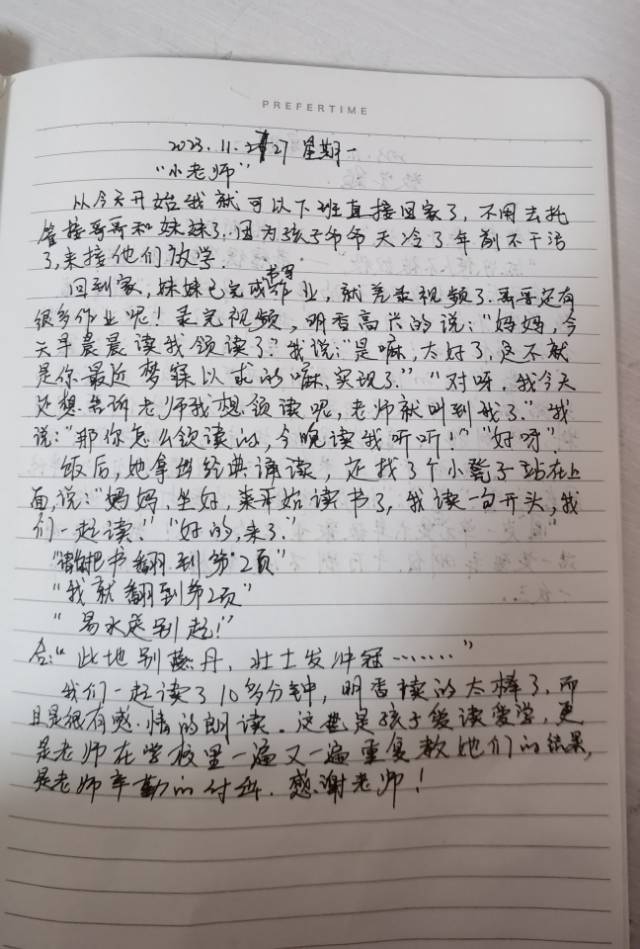 PREFERTIME
2023.11.27 星期一
“小老师”
从今天开始我就可以下班直接回家了，不用去托
管接哥哥和妹妹了.因为孩子爷爷天冷了年前不干活
了,来接他们放学.
回到家,妹妹已完成书写作业，就差录视频了.哥哥还有
很多作业呢！录完视频，明香高兴的说：“妈妈，今
天早晨晨读我领读了？我说：“是嘛，太好了，这不就
是你最近梦寐以求的嘛,实现了.”“对呀，我今天
还想告诉老师我想领读呢，老师就叫到我了.”我
说：“那你怎么领读的，今晚读我听听！”“好呀”.
饭后,她拿出经典诵读，还找了个小凳子站在上
面,说：“妈妈，坐好，来开始读书了，我读一句开头,我
们一起读.”“好的,来了.”
“请把书翻到第2页”
“我就翻到第2页”
“易水送别起！”
合：“此地别燕丹，壮士发冲冠……”
我们一起读了10多分钟，明香读的太棒了，而
且是很有感情的朗读。这也是孩子爱读爱学，更
是老师在学校里一遍又一遍重复教她们的结果,
是老师辛勤的付出.感谢老师！